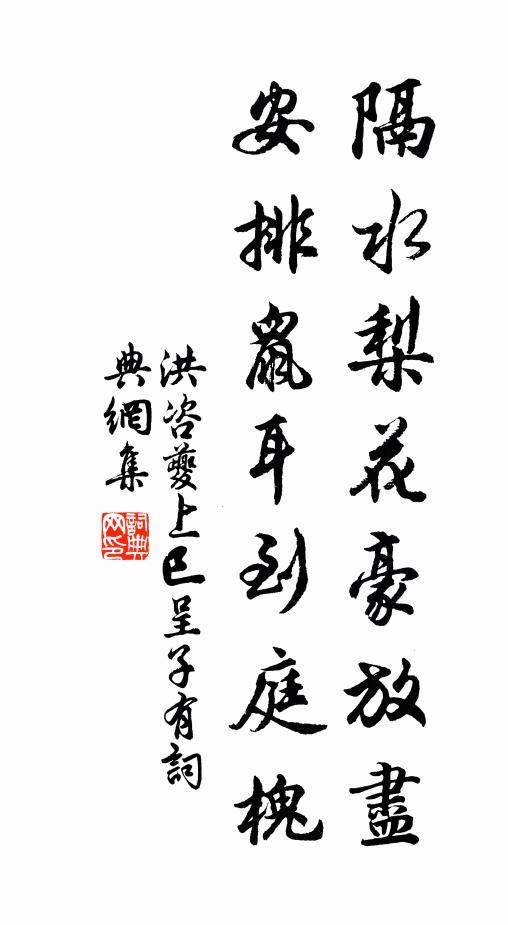 隔水梨花豪放盡
安排鼠耳到庭槐
洪咨夔上巳呈子有詞
典網集
詞典
网印